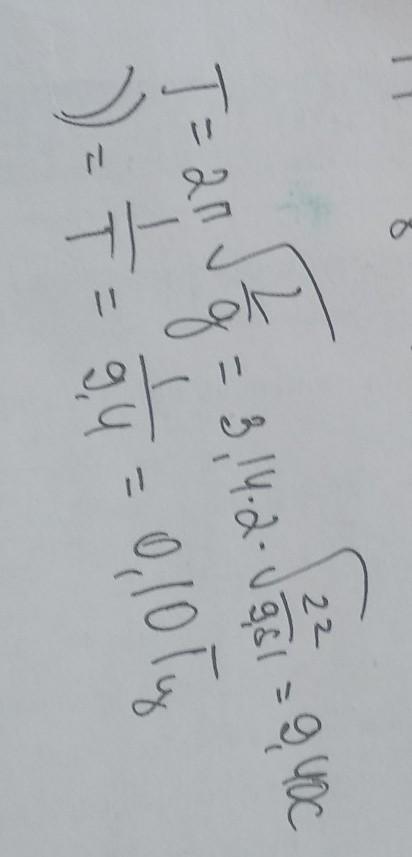 T = 2π √(l/g) = 3,14·2·√(22/9,81) = 9,40с
ν = 1/T = 1/9,4 = 0,10 Гц